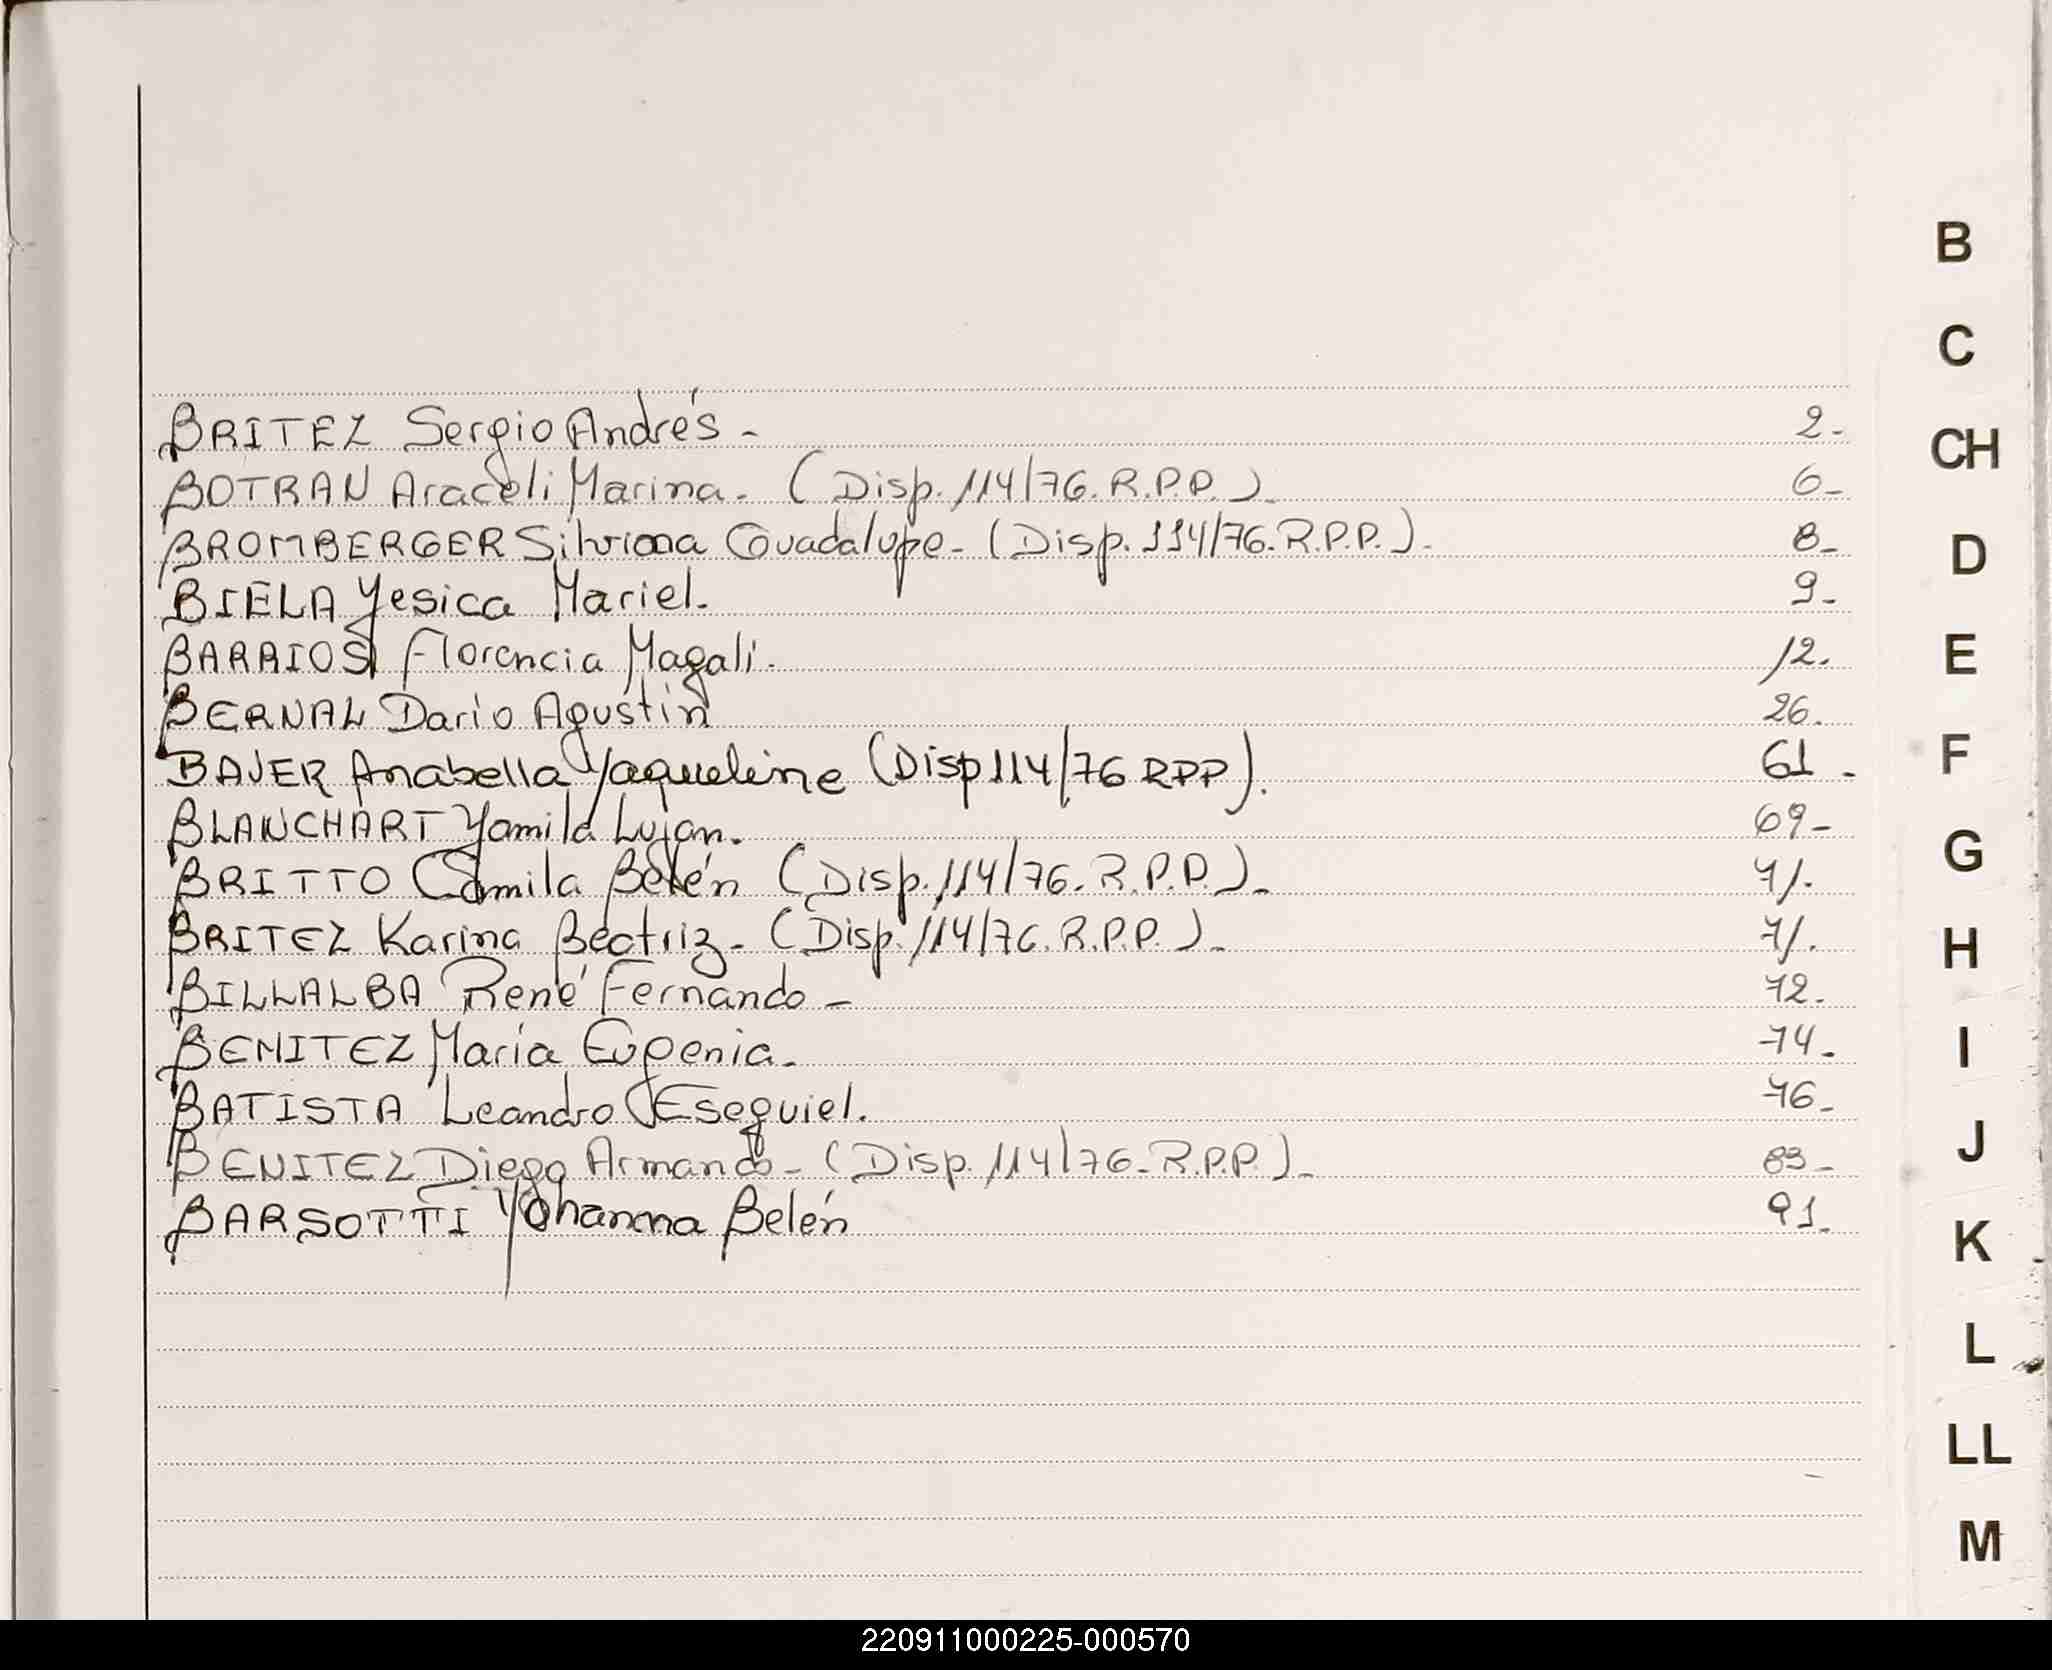 BRITEZ Sergio Andrés - 2-
BOTRAN Araceli Marina. (Disp. 114/76. R.P.P.)- 6-
BROMBERGER Silviana Guadalupe- (Disp. 114/76. R.P.P.)- 8-
BIELA Yesica Mariel. 9-
BARRIOS Florencia Magali. 12.
BERNAL Dario Agustín 26.
BAJER Anabella Yaqueline (Disp 114/76 RPP). 61-
BLANCHART Yamila Lujan. 69-
BRITTO Camila Belén (Disp. 114/76. R.P.P.)- 71.
BRITEZ Karina Beatriz- (Disp. 114/76. R.P.P.)- 71.
BILLALBA René Fernando - 72.
BENITEZ María Eugenia. 74.
BATISTA Leandro Esequiel. 76-
BENITEZ Diego Armando- (Disp. 114/76- R.P.P.)- 83-
BARSOTTI Yohanna Belén 91.
B
C
CH
D
E
F
G
H
I
J
K
L
LL
M
220911000225-000570